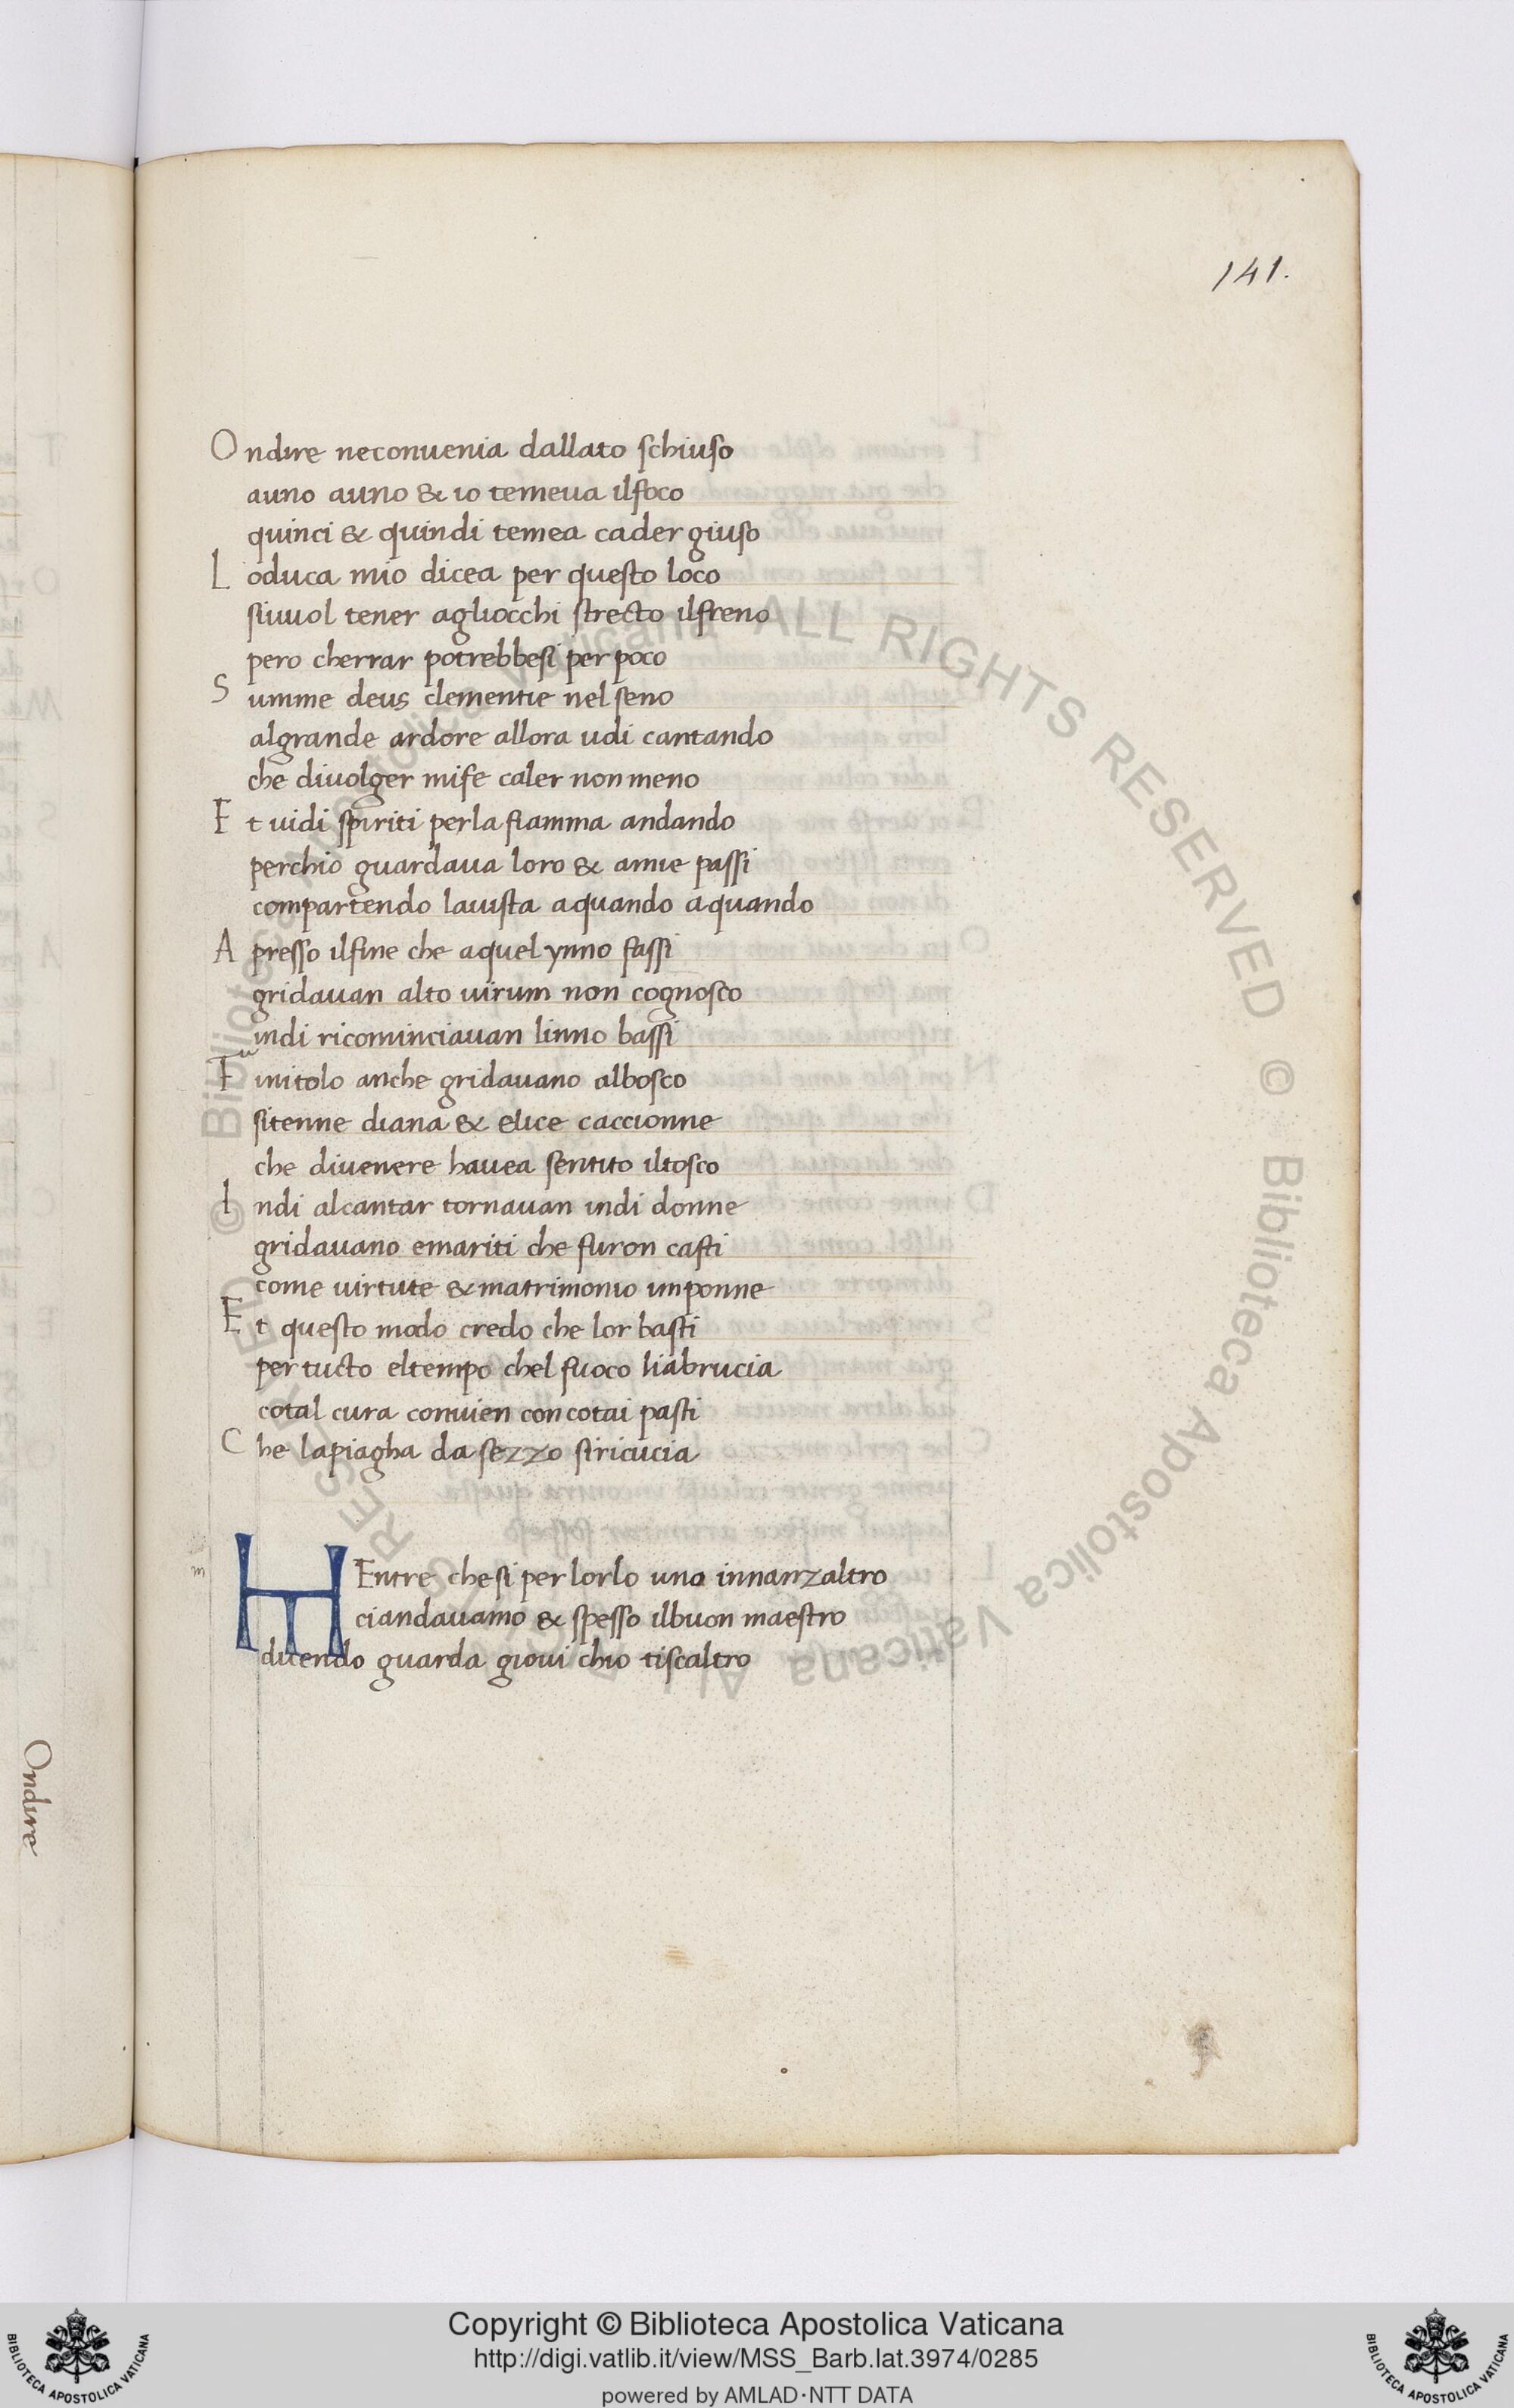 141.
Ondire neconuenia dallato schiuso
auno auno & io temeua ilfoco
quinci & quindi temea cader giuso
Loduca mio dicea per questo loco
siuuol tener agliocchi strecto ilfreno
pero cherrar potrebbesi perpoco
Summe deus clementie nel seno
algrande ardore allora udi cantando
che diuolger mife caler non meno
Et uidi spiriti perla fiamma andando
perchio guardaua loro & amie passi
compartendo lauista aquando aquando
Apresso ilfine che aquel ynno fassi
gridauan alto uirum non cognosco
indi ricominciauan linno bassi
Finitolo anche gridauano albosco
sitenne diana & elice caccionne
che diuenere hauea sentito iltosco
Indi alcantar tornauan indi donne
gridauano emariti che furon casti
come uirtute & matrimonio imponne
Et questo modo credo che lor basti
per tucto eltempo chel fuoco liabrucia
cotal cura conuien con cotai pasti
Che lapiagha da sezzo siricucia
m
MEntre che si per lorlo uno innanzaltro
ciandauamo & spesso ilbuon maestro
dicendo guarda gioui chio tiscaltro
Ondire
© Biblioteca Apostolica Vaticana ALL RIGHTS RESERVED © Biblioteca Apostolica Vaticana ALL RIGHTS RESERVED
Copyright © Biblioteca Apostolica Vaticana
http://digi.vatlib.it/view/MSS_Barb.lat.3974/0285
powered by AMLAD·NTT DATA
BIBLIOTECA APOSTOLICA VATICANA
BIBLIOTECA APOSTOLICA VATICANA